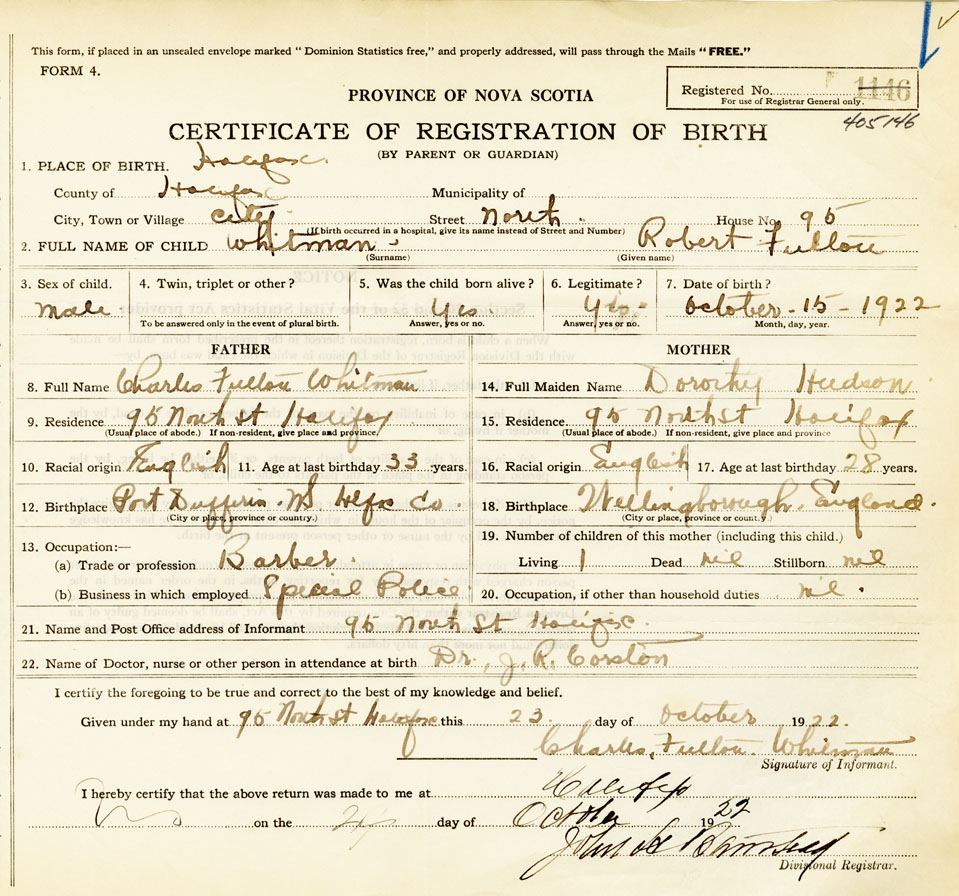 This form, if placed in an unsealed envelope marked "Dominion Statistics free," and properly addressed, will pass through the Mails "FREE."
FORM 4.
Registered No. 1146
For use of Registrar General only.
405146
PROVINCE OF NOVA SCOTIA
CERTIFICATE OF REGISTRATION OF BIRTH
(BY PARENT OR GUARDIAN)
1. PLACE OF BIRTH. Halifax.
County of Halifax Municipality of
City, Town or Village city Street North House No. 95
(If birth occurred in a hospital, give its name instead of Street and Number)
2. FULL NAME OF CHILD Whitman Robert Fulton
(Surname) (Given name)
3. Sex of child. 4. Twin, triplet or other? 5. Was the child born alive? 6. Legitimate? 7. Date of birth?
male Yes Yes October - 15 - 1922
To be answered only in the event of plural birth. Answer, yes or no. Answer, yes or no. Month, day, year.
FATHER MOTHER
8. Full Name Charles Fulton Whitman 14. Full Maiden Name Dorothy Hudson
9. Residence 95 North St Halifax 15. Residence. 95 North St Halifax
(Usual place of abode.) If non-resident, give place and province/ (Usual place of abode.) If non-resident, give place and province
10. Racial origin English 11. Age at last birthday 33 years. 16. Racial origin English 17. Age at last birthday 28 years.
12. Birthplace Port Dufferin. NS Hlfx Co. 18. Birthplace Wellingborough. England.
(City or place, province or country.) (City or place, province or country.)
13. Occupation:— 19. Number of children of this mother (including this child.)
(a) Trade or profession Barber. Living 1 Dead nil Stillborn nil
(b) Business in which employed Special Police 20. Occupation, if other than household duties nil.
21. Name and Post Office address of Informant 95 North St Halifax.
22. Name of Doctor, nurse or other person in attendance at birth Dr. J. R. Corston
I certify the foregoing to be true and correct to the best of my knowledge and belief.
Given under my hand at 95 North St Halifax this 23 day of October 1922.
Charles Fulton Whitman
Signature of Informant.
I hereby certify that the above return was made to me at Halifax
on the day of October 1922
John
Divisional Registrar.